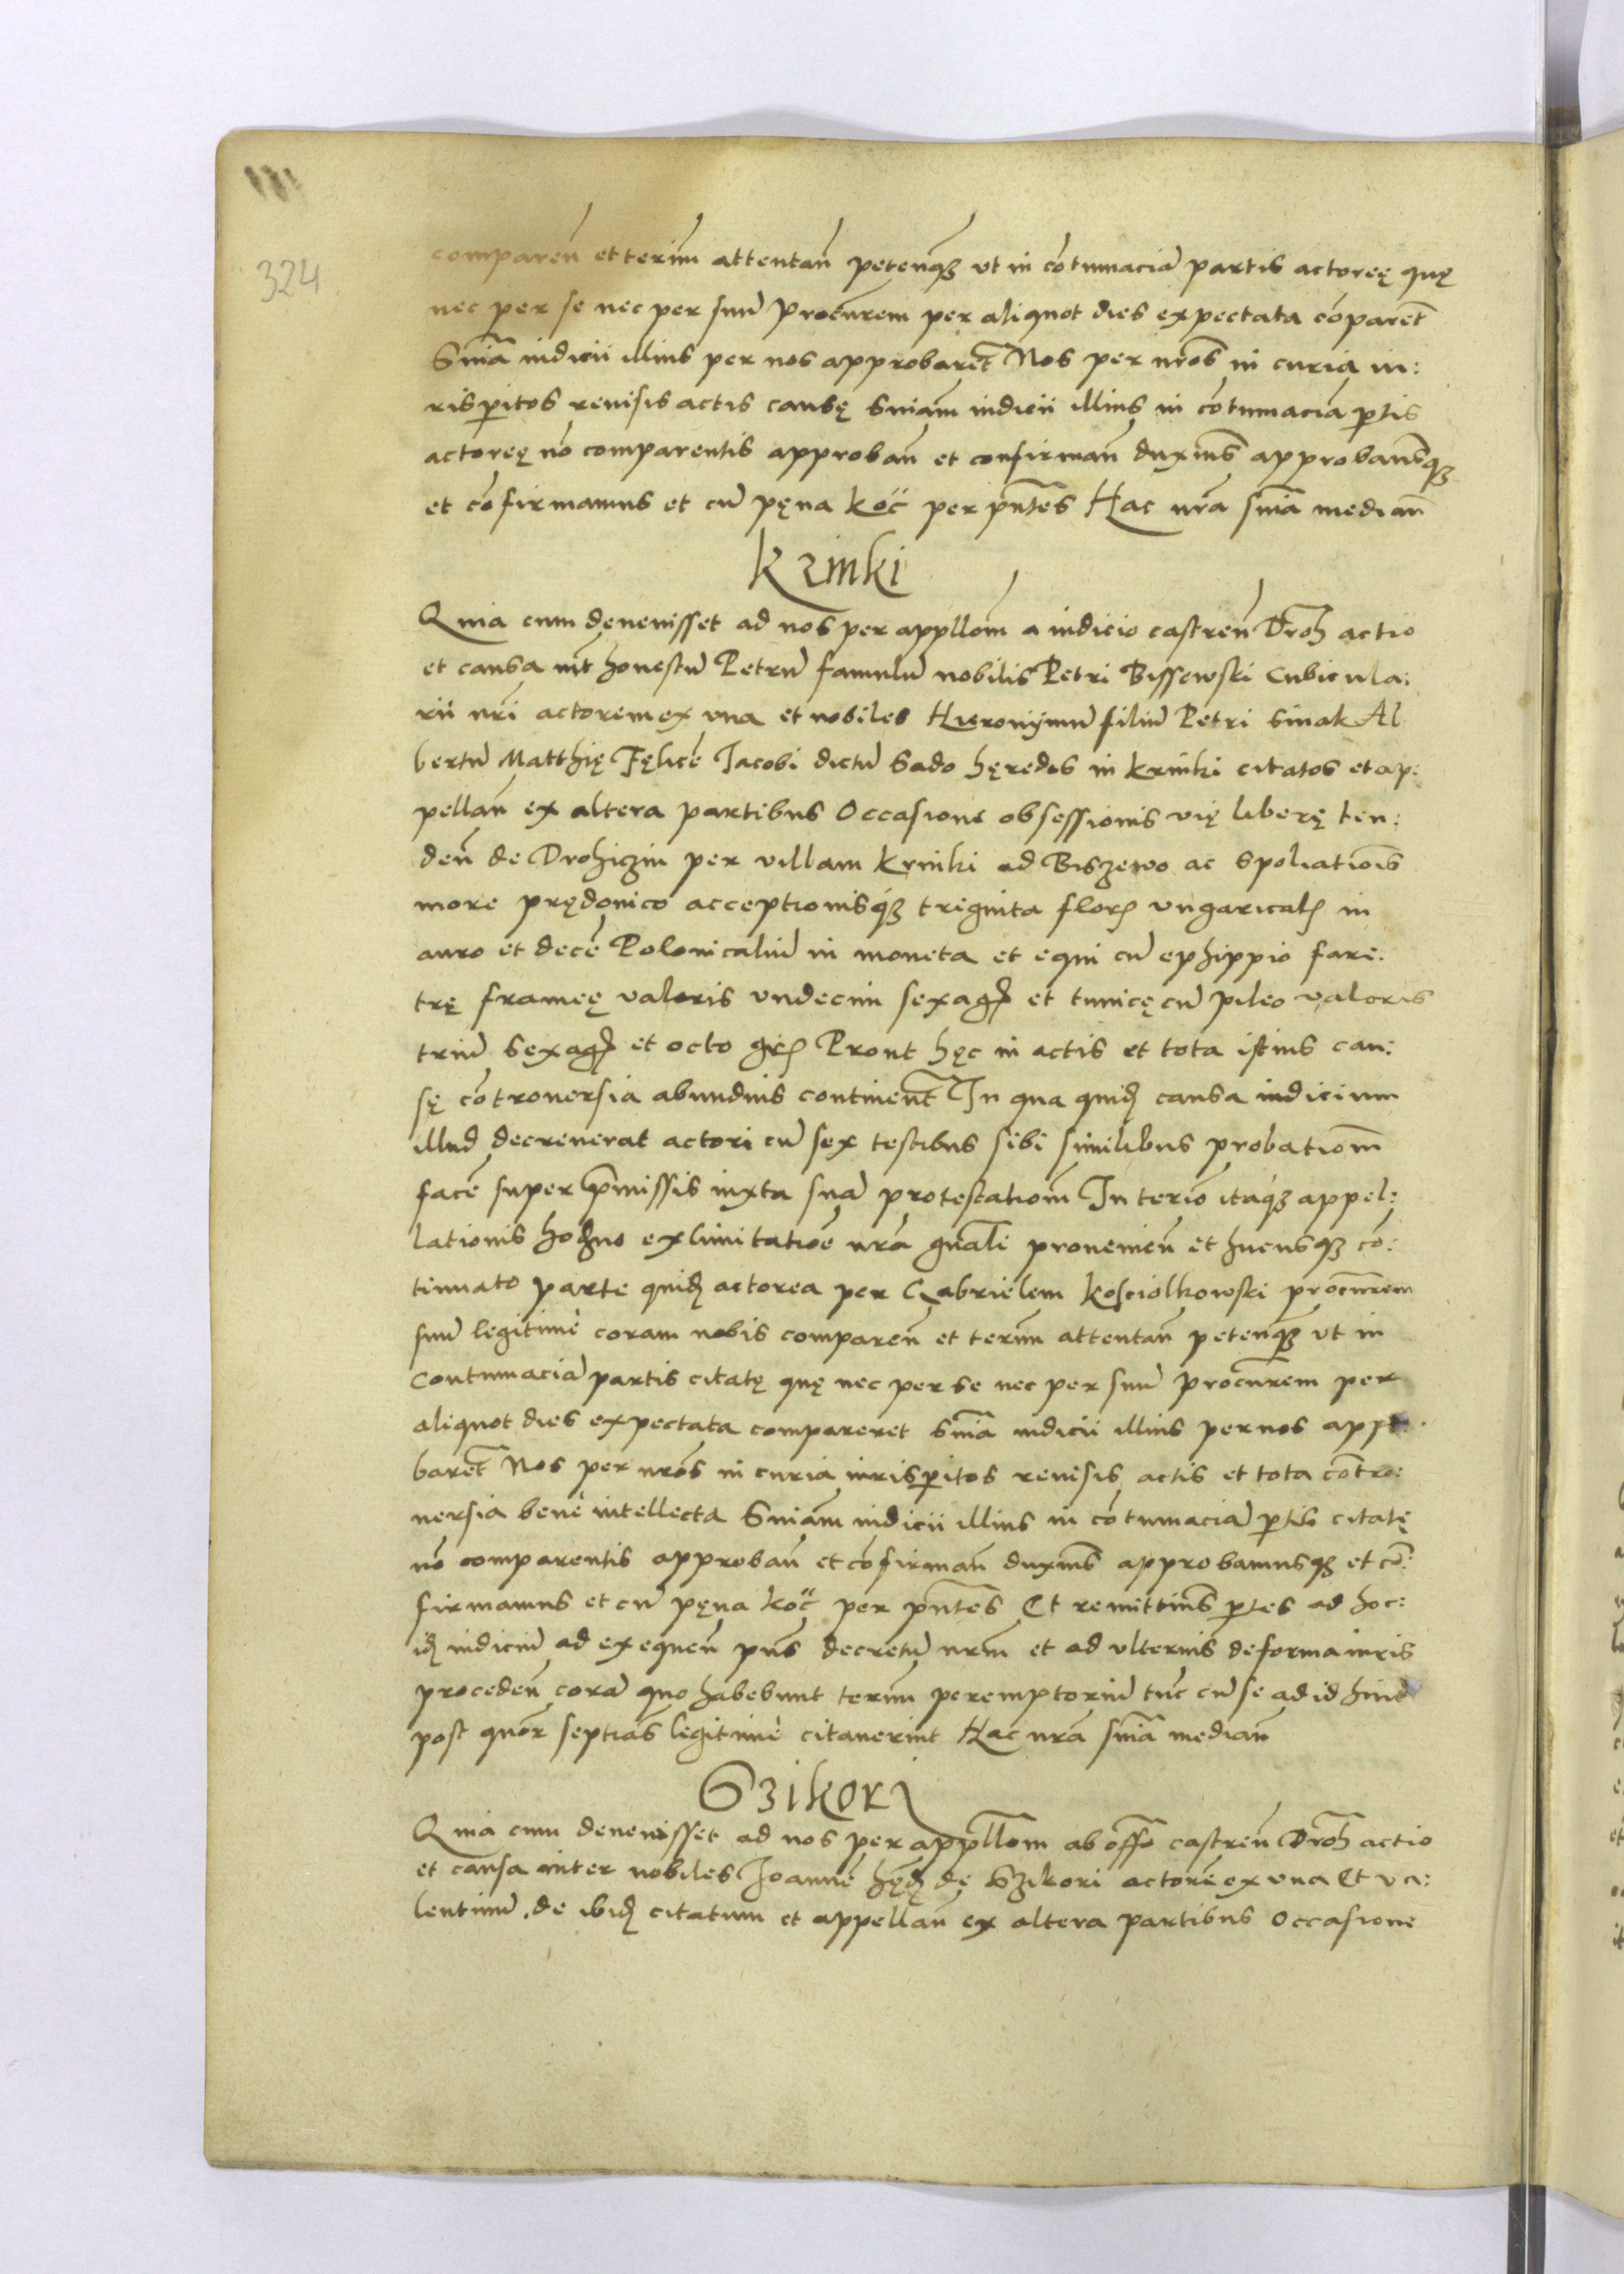 324
comparen̄ et termī attentan̄ petenq̃ʒ vt in cōtumaciā partis actoreę quę
nec per se nec per suū Procūrem per aliquot dies expectata cōparet̄
Sniā iudicii illius per nos approbaret̄ Nos per nrōs in curia iu:
risp̄itos reuisis actis causę Sniam̄ iudicii illius in cōtumaciā p̄tis
actoreę nō comparentis approban̄ et confirman̄ duxim̄s approbam̄sqʒ
et cōfirmamus et cū pęna koc̄ per pn̄tes Hac nrā sniā median̄
Krinki
Quia cum deuenisset ad nos per appllōm a iudicio castren̄ Droh̄ actio
et causa int̄ honestū Petrū famulū nobilis Petri Bissewski Cubicula:
rii nrī actorem ex vna et nobiles Hieronijmū filiū Petri Siuak Al
bertū Matthię Fęlicē Iacobi dictū Sado hęredes in krinki citatos et ap:
pellan̄ ex altera partibus Occasione obsessionis vię liberę ten:
den̄ de Drohiczin per villam Krinki ad Biszewo ac Spoliatiōis
more prędonico acceptionisq́ʒ treginta florꝭ vngaricalꝭ in
auro et decē Polonicaliū in moneta et equi cū ephippio fare:
trę frameę valoris vndecim sexagꝭ et tunicę cū pileo valoris
triū sexagꝭ et octo grꝭ Prout hęc in actis et tota istius cau:
sę cōtrouersia abundius continent̄ In qua quidꝭ causa iudicium
illud decreuerat actori cū sex testibus sibi similibus probatiom̄
facē super p̄missis iuxta suā protestatiom̄ In termō itaq́ʒ appel:
lationis hodno ex limitatiōe nrā gnāli prouenien̄ et hucusq̃ʒ cō:
tinuato parte quidꝭ actorea per Gabrielem Kosciolkowski procūrem
suū legitimè coram nobis comparen̄ et termī attentan̄ petenq̃ʒ vt in
contumaciā partis citatę quę nec per se nec per suū procūrem per
aliquot dies expectata compareret Sniā iudicii illius per nos appro:
baret̄ Nos per nrōs in curia iurisp̄itos reuisis actis et tota cōtro:
uersia benè intellecta Sniam̄ iudicii illius in cōtumaciā p̄tis citatę
nō comparentis approban̄ et cōfirman̄ duxim̄s approbamusqʒ et cō:
firmamus et cū pęna koc̄ per pn̄tes Et remittim̄s p̄tes ad hoc:
idꝭ iudiciū ad exequen̄ pn̄s decretū nrm̄ et ad vlterius de forma iuris
proceden̄ corā quo habebunt termī peremptoriū tūc cū se ad id hinc
post quōr septiās legitimè citauerint Hac nrā sniā median̄
Szikori
Quia cum deuenisset ad nos per appllōm ab offō castren̄ Droh̄ actio
et causa inter nobiles Joannē hędꝭ de Szikori actorē ex vna Et va:
lentinū de ibidꝭ citatum et appellan̄ ex altera partibus Occasione